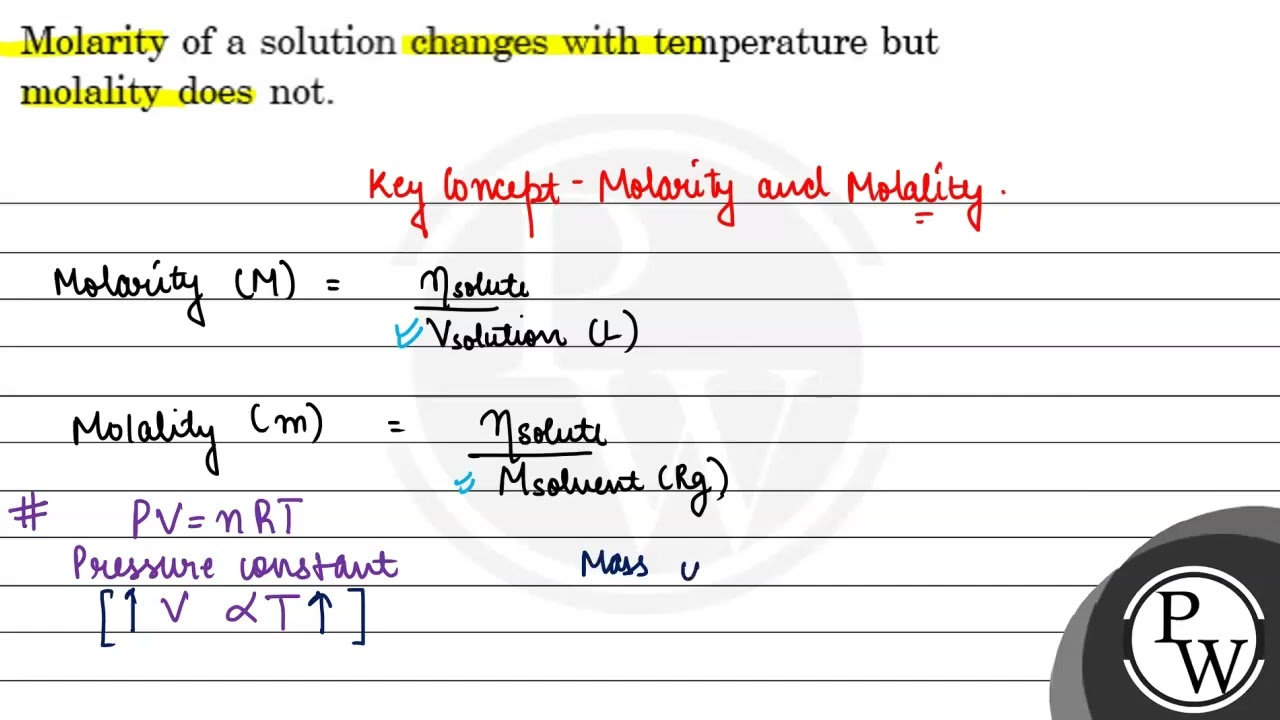 Molarity of a solution changes with temperature but
molality does not.
Key Concept - Molarity and Molality.
Molarity (M) = ηsolute
Vsolution (L)
Molality (m) = ηsolute
Msolvent (Kg)
# PV = nRT
Pressure constant
Mass
[↑ V ∝ T ↑]
PW
PW